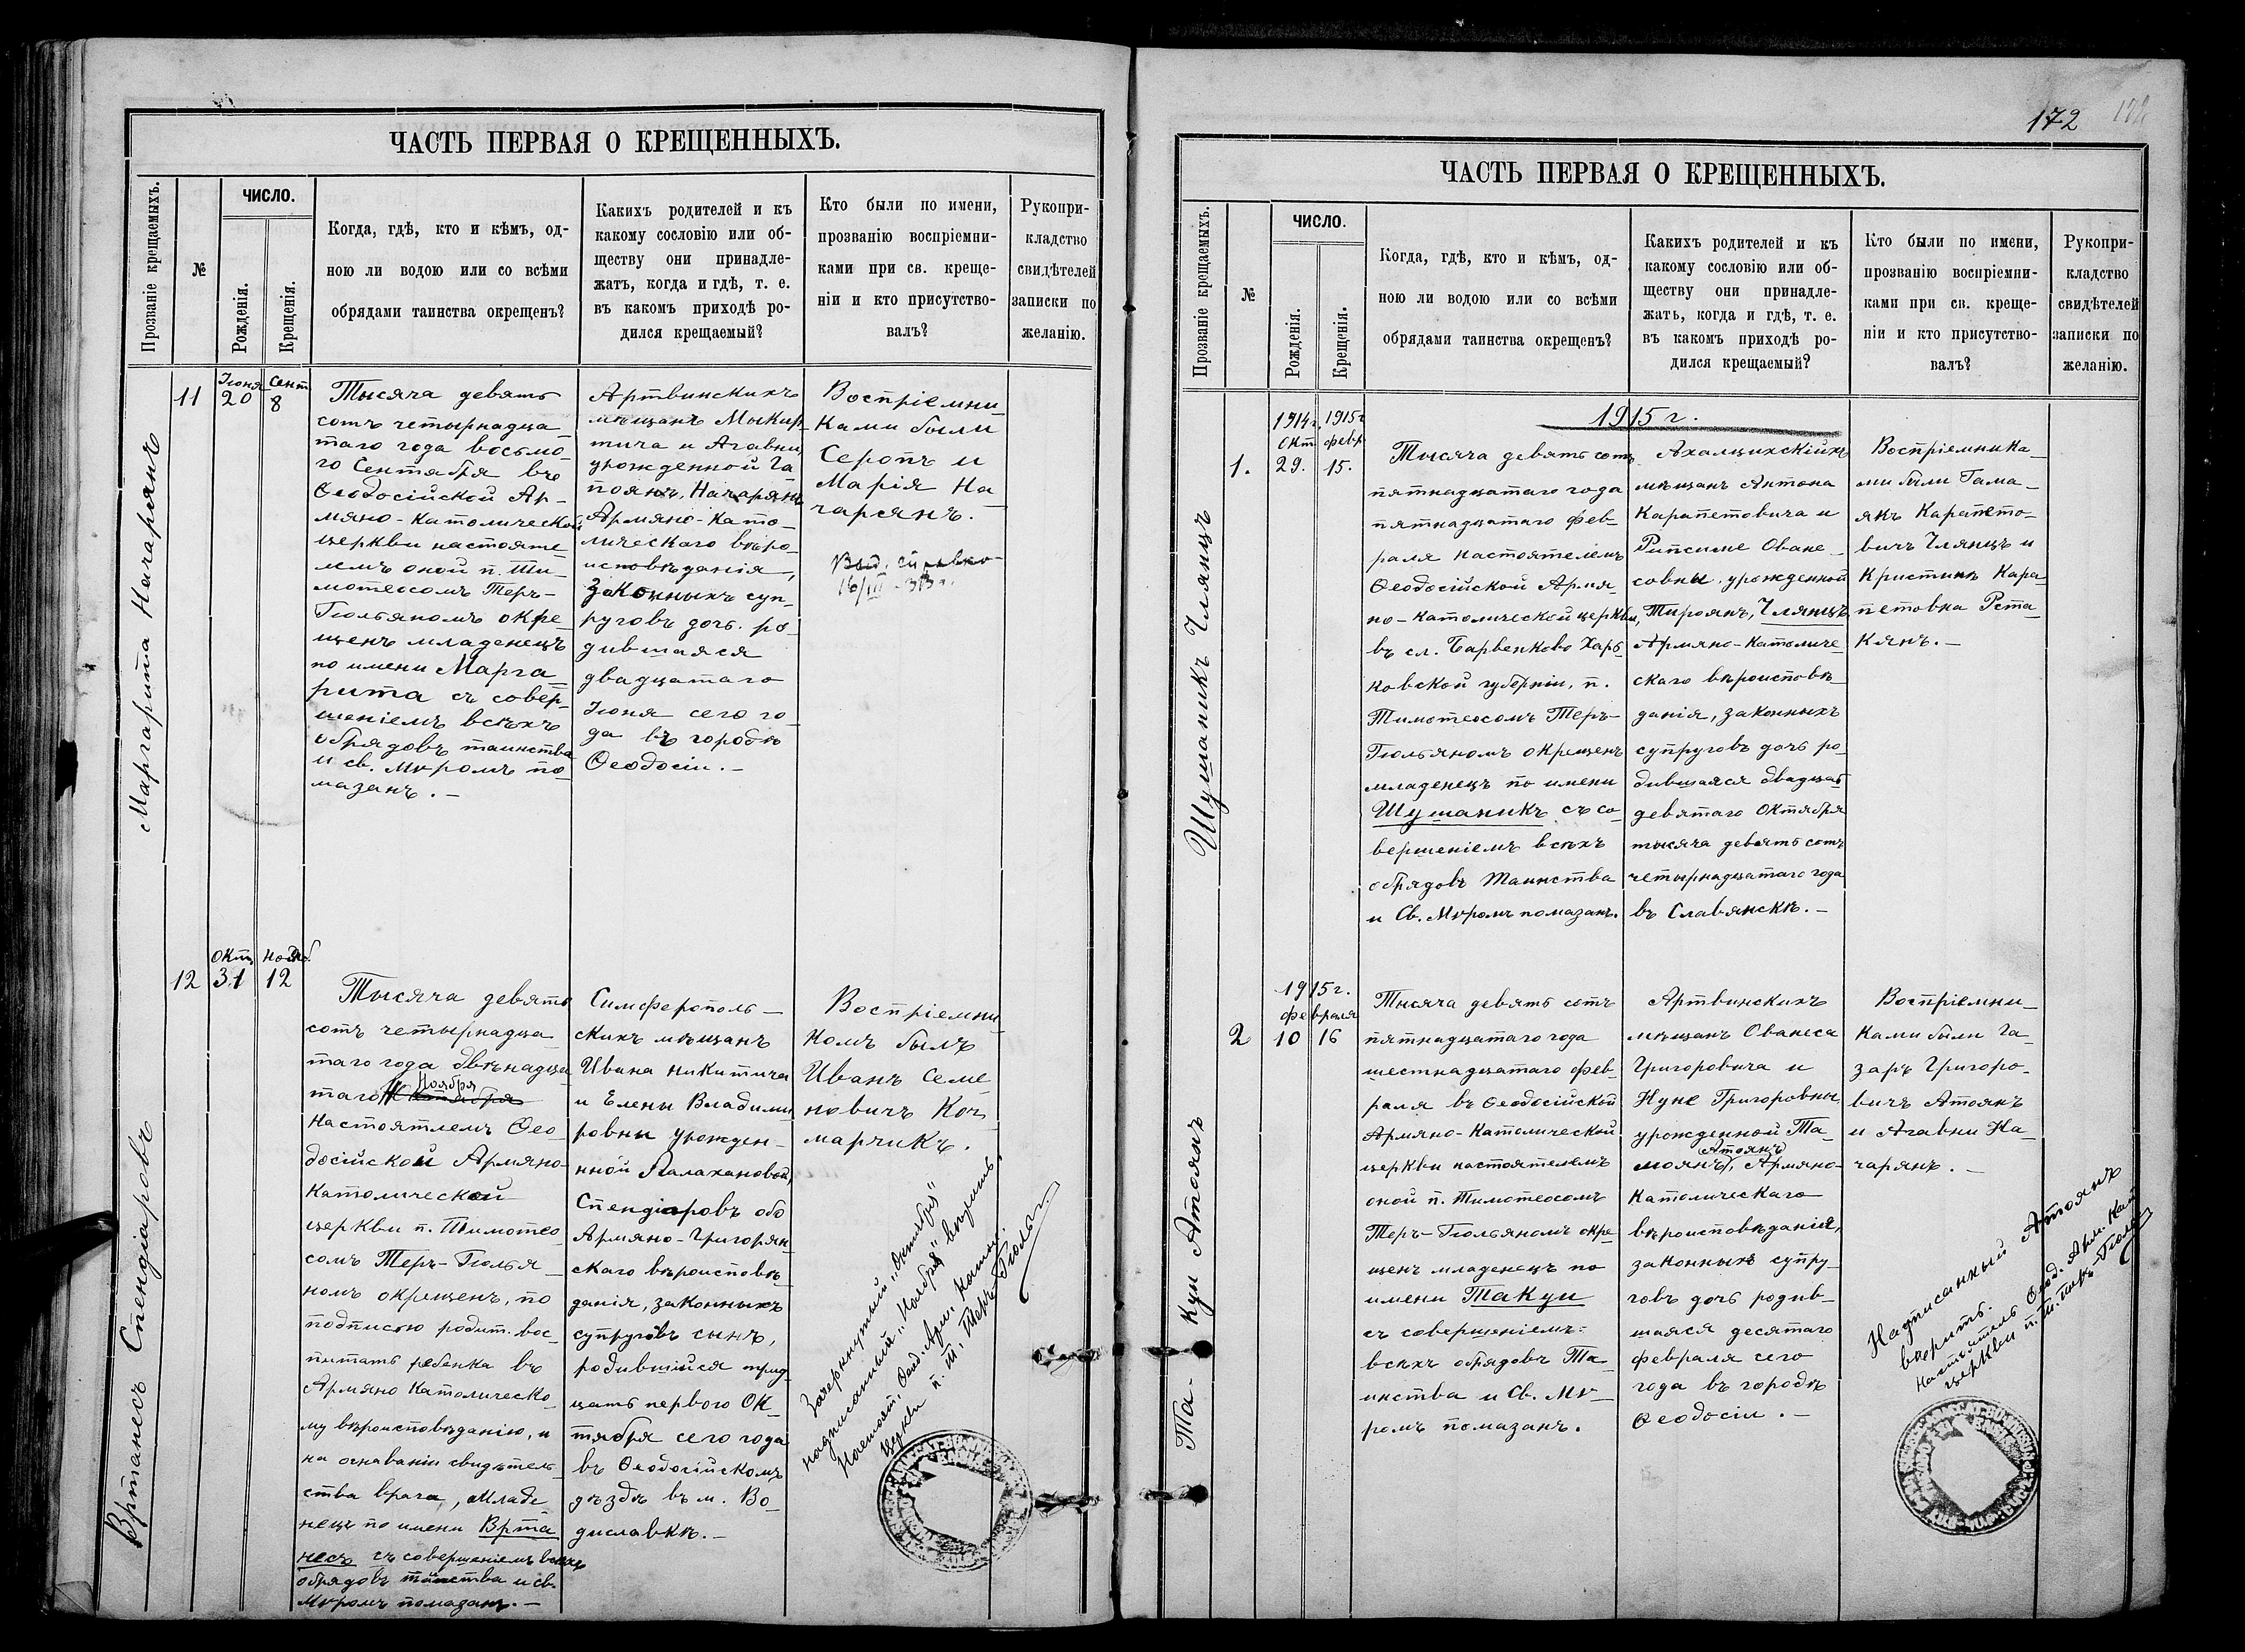 ЧАСТЬ ПЕРВАЯ О КРЕЩЕННЫХЪ.
Прозваніе крещаемыхъ.
№
ЧИСЛО.
Рожденія.
Крещенія.
Когда, гдѣ, кто и кѣмъ, од-
ною ли водою или со всѣми
обрядами таинства окрещенъ?
Какихъ родителей и къ
какому сословію или об-
ществу они принадле-
жатъ, когда и гдѣ, т. е.
въ какомъ приходѣ ро-
дился крещаемый?
Кто были по имени,
прозванію воспріемни-
ками при св. креще-
ніи и кто присутство-
валъ?
Рукопри-
кладство
свидѣтелей
записки по
желанію.
Маргарита Начарянъ
11
Іюня
20
Сент
8
Тысяча девять
сотъ четырнадца
таго года восьмо
го Сентября въ
Ѳеодосійской Ар-
мяно-Католической
церкви настояте
лемъ оной п. Ти-
мотеосомъ Теръ-
Гюльяномъ окре
щенъ младенецъ
по имени Марга
рита съ совер-
шеніемъ всѣхъ
обрядовъ таинства
и св. мѵромъ по
мазанъ. –
Артвинскихъ
мѣщанъ Мыкир-
тича и Агавни
урожденной Га
поянъ, Начарянъ
Армяно-Като-
лическаго вѣро-
исповѣданія,
законныхъ суп-
руговъ дочь. ро-
дившаяся
двадцатаго
Іюня сего го-
да въ городѣ
Ѳеодосіи. –
Воспріемни-
ками были
Серопъ и
Марія На-
чарянъ.
Выд. справка
16/III
Вртанесъ Спендіаровъ
12
Окт
31
Нояб.
12
Тысяча девять
сотъ четырнадца
таго года двѣнадца
Ноября
таго Октября
настоятлемъ Ѳео
досійской Армяно-
Католической
церкви п. Тимотео
сомъ Теръ-Гюлья
номъ окрещенъ, по
подписью родит. вос-
питать ребенка въ
Армяно Католическо-
му вѣроисповѣданію, и
на оснаваніи свидѣтель
ства врача, младе
нецъ по имени Врта
несъ съ совершеніемъ всѣхъ
обрядовъ таинства и св.
Мѵромъ помазанъ. –
Симферополь-
скихъ мѣщанъ
Ивана Никитича
и Елены Владими
ровны урожден-
нной Палахановой,
Спендіаровъ обо
Армяно-Григорян-
скаго вѣроисповѣ-
данія, законныхъ
супруговъ сынъ,
родившійся трид
цать первого Ок-
тября сего года
въ Ѳеодосійскомъ
уѣздѣ въ м. Во-
диславкѣ. –
Воспріемни-
комъ былъ
Иванъ Семе
новичъ Кон
марчикъ.
Зачеркнутый „октября"
надписанный „Ноября" вѣрить
Настоят. Ѳеод. Арм. Катол.
Церкви п. Т. Теръ-Гюльян
172
172
ЧАСТЬ ПЕРВАЯ О КРЕЩЕННЫХЪ.
Прозваніе крещаемыхъ.
№
ЧИСЛО.
Рожденія.
Крещенія.
Когда, гдѣ, кто и кѣмъ, од-
ною ли водою или со всѣми
обрядами таинства окрещенъ?
Какихъ родителей и къ
какому сословію или об-
ществу они принадле-
жатъ, когда и гдѣ, т. е.
въ какомъ приходѣ ро-
дился крещаемый?
Кто были по имени,
прозванію воспріемни-
ками при св. креще-
ніи и кто присутство-
валъ?
Рукопри-
кладство
свидѣтелей
записки по
желанію.
1915 г.
Шушаникъ Члянцъ
1.
1914г.
Окт
29.
1915г
февр
15.
Тысяча девять сотъ
пятнадцатаго года
пятнадцатаго фев-
раля настоятелемъ
Ѳеодосійской Армя-
но-католической церкви,
въ сл. Барвенково Харь-
ковской губерніи, п.
Тимотеосомъ Теръ-
Гюльяномъ окрещенъ
младенецъ по имени
Шушаникъ съ со-
вершеніемъ всѣхъ
обрядовъ Таинства
и Св. Мѵромъ помазанъ.
Ахалцихскійхъ
мѣщанъ Антона
Карапетовича и
Рипсиме Оване-
совны, урожденной
Тироянъ, Члянцъ
Армяно-Католиче-
скаго вѣроисповѣ-
данія, законныхъ
супруговъ дочь ро-
дившаяся двадцать
девятаго Октября
тысяча девять сотъ
четырнадцатаго года
въ Славянскѣ. –
Воспріемника-
ми были Гама-
якъ Карапето-
вичъ Члянцъ и
Кристинъ Кара-
петовна Рста-
кянъ. –
Та-Кун Атоянъ
2
1915 г.
февраля
10
16
Тысяча девять сотъ
пятнадцатаго года
шестнадцатаго фев-
раля въ Ѳеодосійской
Армяно-Католической
церкви настоятелемъ
оной п. Тимотеосомъ
Теръ-Гюльяномъ окре-
щенъ младенецъ по
имени Такуи
съ совершеніемъ
всѣхъ обрядовъ Та-
инства и Св. Мѵ-
ромъ помазанъ.
Артвинскихъ
мѣщанъ Ованеса
Григоровича и
Нуне Григоровны,
урожденной Та-
Атоянъ
моянъ, Армяно-
Католическаго
вѣроисповѣданія,
законныхъ супру-
говъ дочь родив-
шаяся десятаго
февраля сего
года въ городѣ
Ѳеодосіи. –
Воспріемни-
ками были Га-
заръ Григоро-
вичъ Атоянъ
и Агавни На-
чарянъ. –
Надписанный Атоянъ
вѣрить.
Настоятель Ѳеод. Арм. Кат
церкви п. Т. Теръ-Гюльян